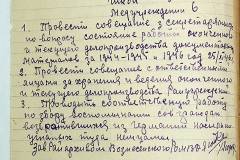 Междурождении 6
1. Провести совещание з секретарями
по вопросу состояние работы оконченного
и текущего делопроизводства документальных
материалов за 1944-1945 и 1946 год
2. Провести совещание с ответственными
лицами за хранения и ведения оконченного
и текущего делопроизводства Райучреждения
3. Проводить соответственную работу
по сбору воспоминания сов. граждан
возвратившихся из Германии
угнаных туда немцами.
Зав Райархивом Вознесенского Района